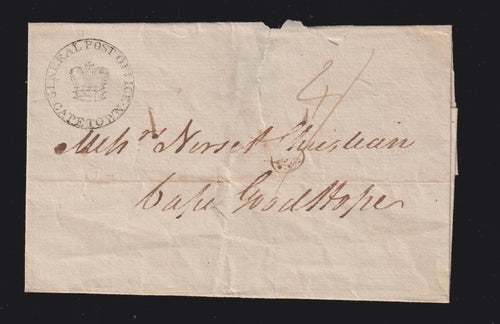 GENERAL POST OFFICE
CAPETOWN
4/
Messrs Nisbet Christian
Cape Good Hope